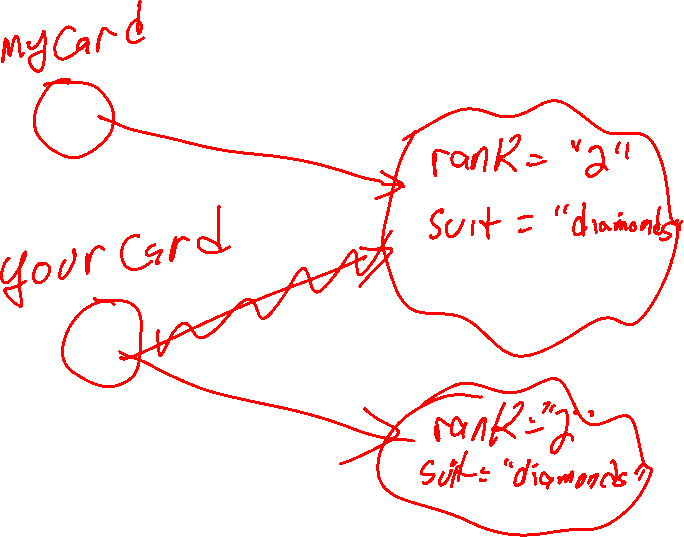 mycard
rank= "2"
suit = "diamonds"
yourcard
rank="2"
suit="diamonds"